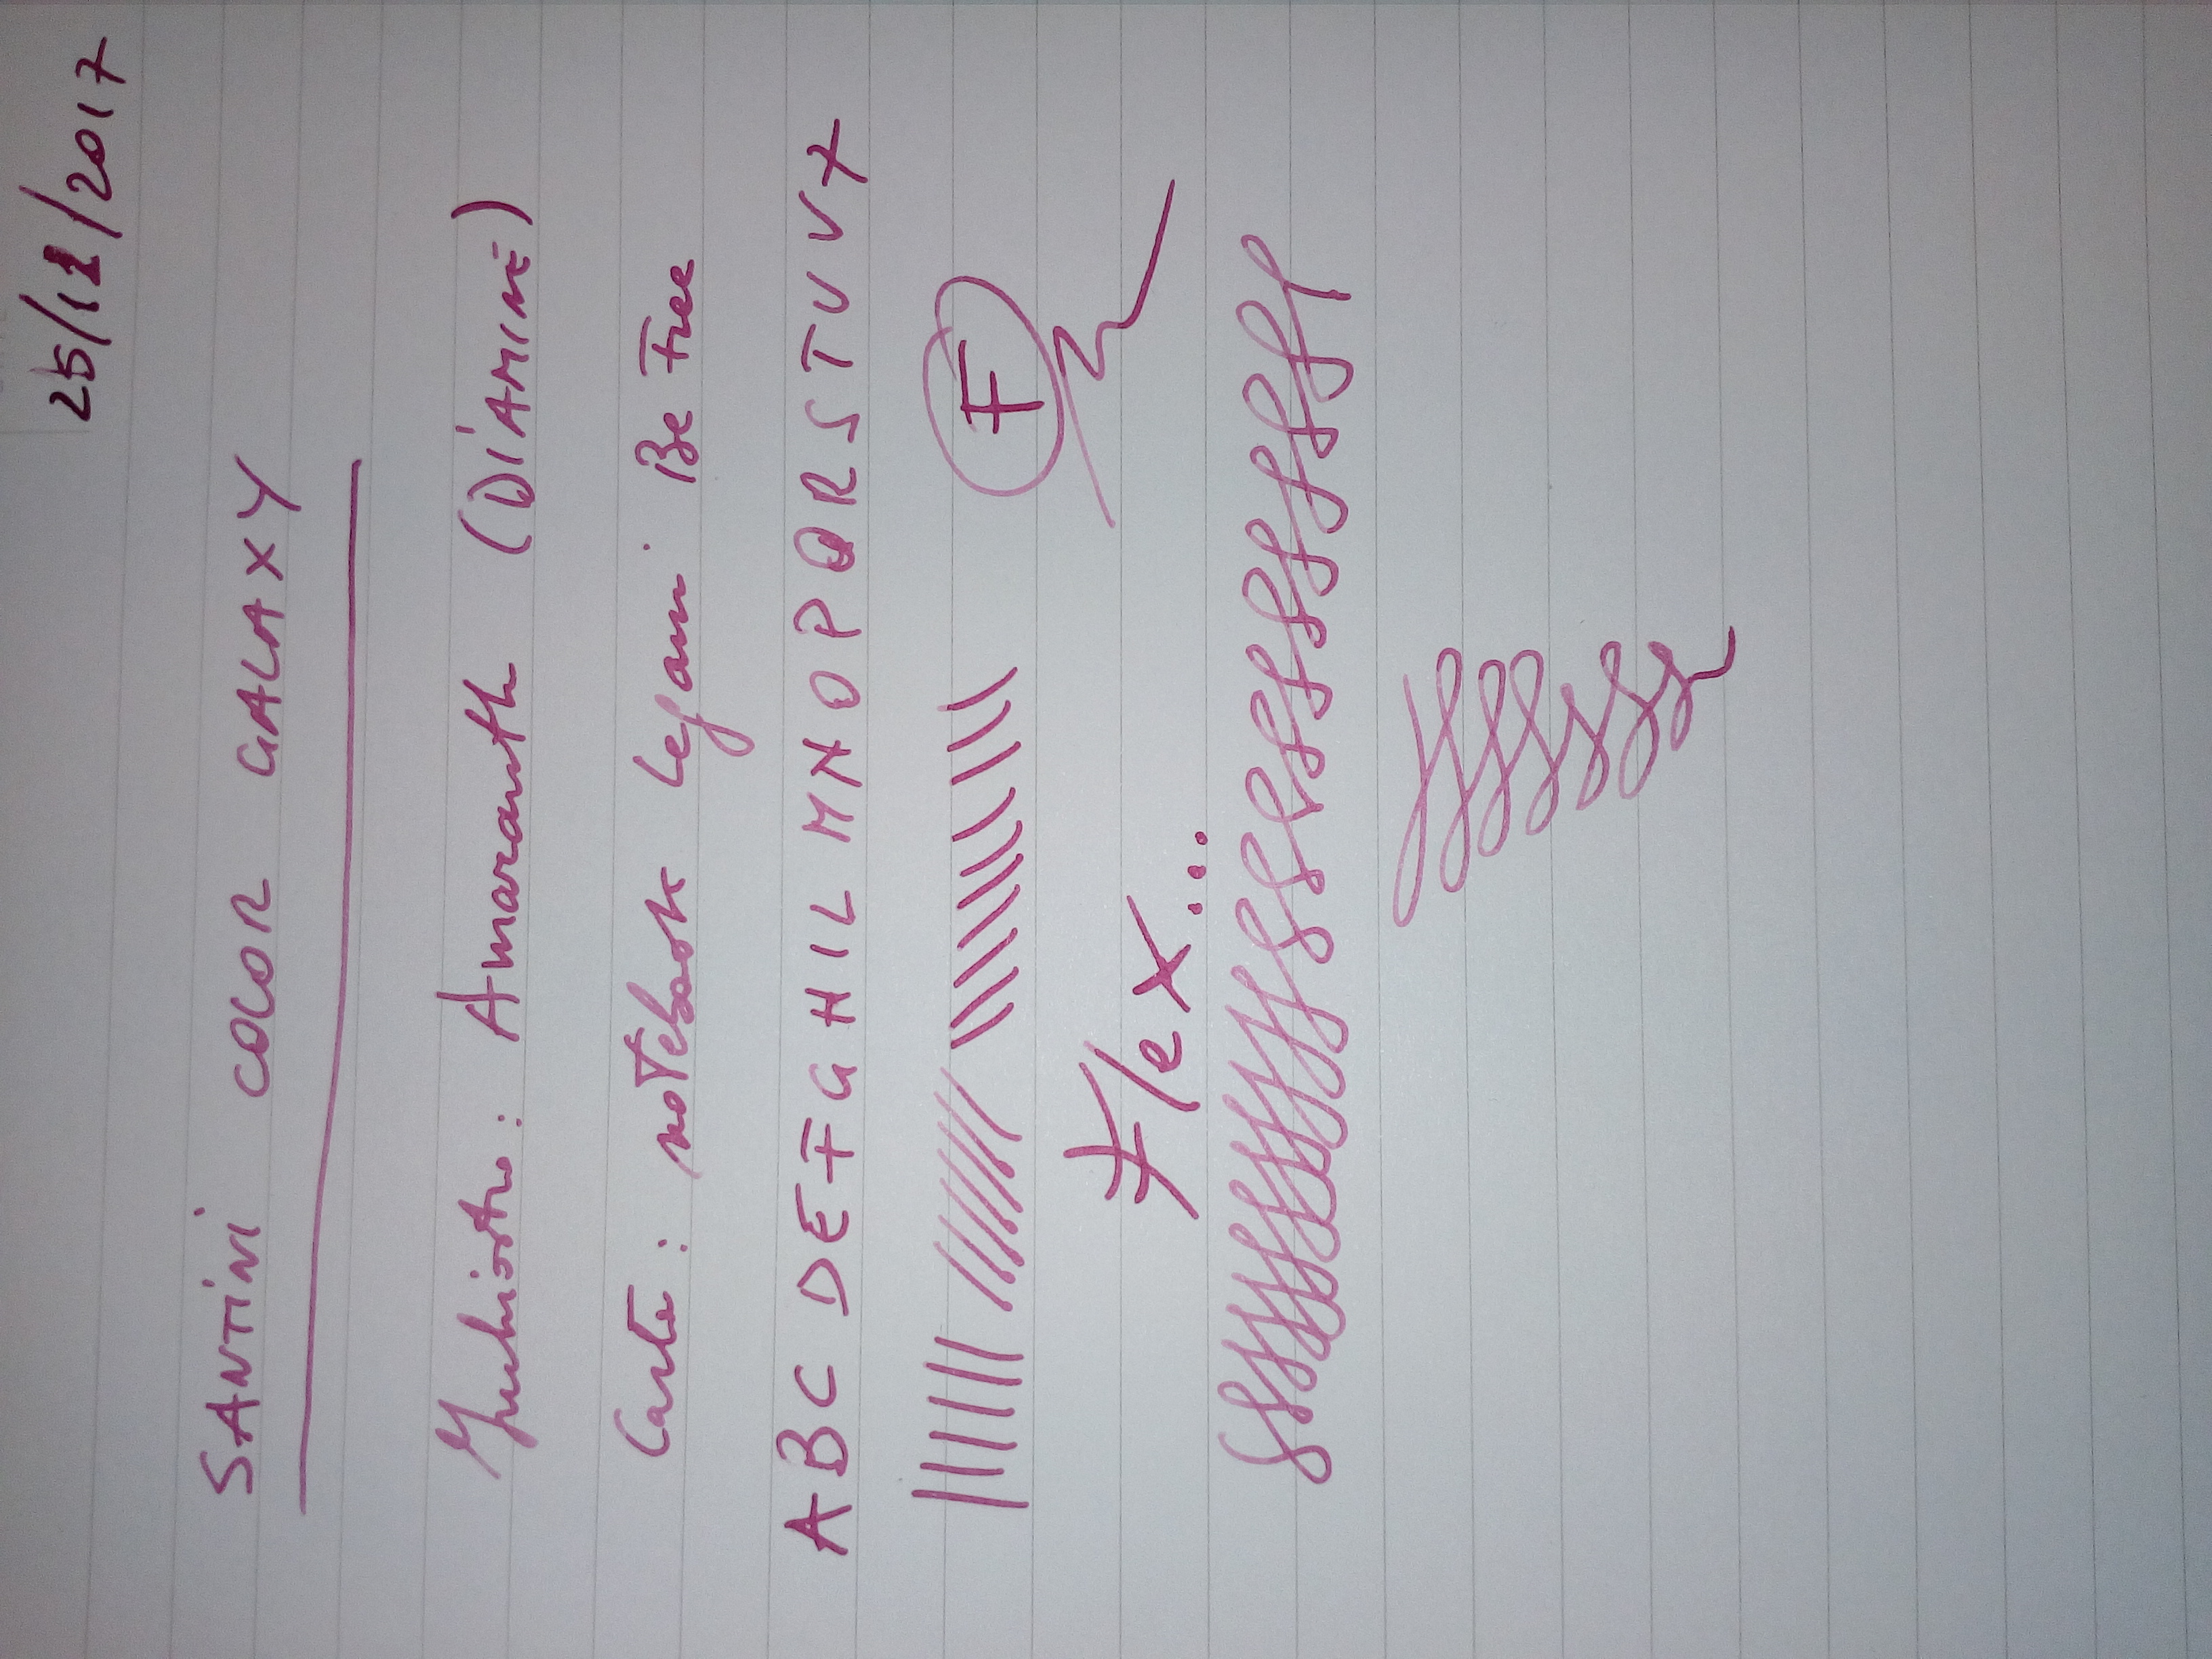 25/11/2017
SANTINI COLOR GALAXY
Inchiostro: Amaranth (DIAMINE)
Carta: notebook Legami Be Free
A B C D E F G H I L M N O P Q R S T U V X
F
Flex...